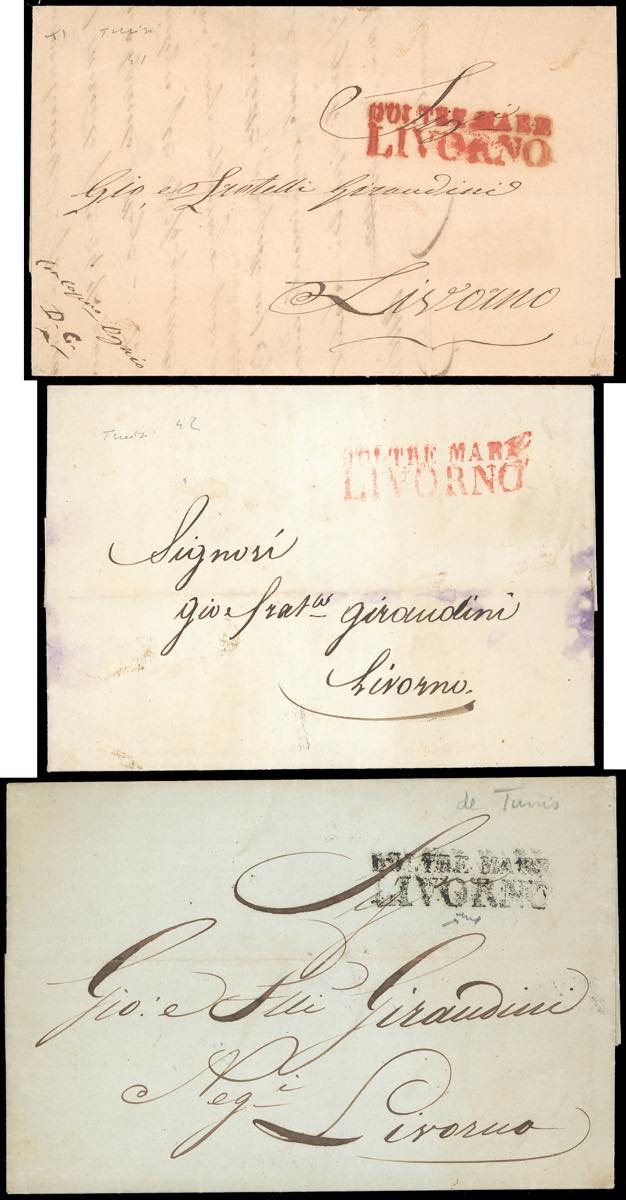 Tunisi
41
Sig.ri
D'OLTRE MARE
LIVORNO
Gio. e Fratelli Giraudini
Livorno
42
D'OLTRE MARE
LIVORNO
Signori
Gio e Frat.lli Giraudini
Livorno.
de Tunis
D'OLTRE MARE
LIVORNO
Gio: e Flli Giraudini
Neg.i
Livorno